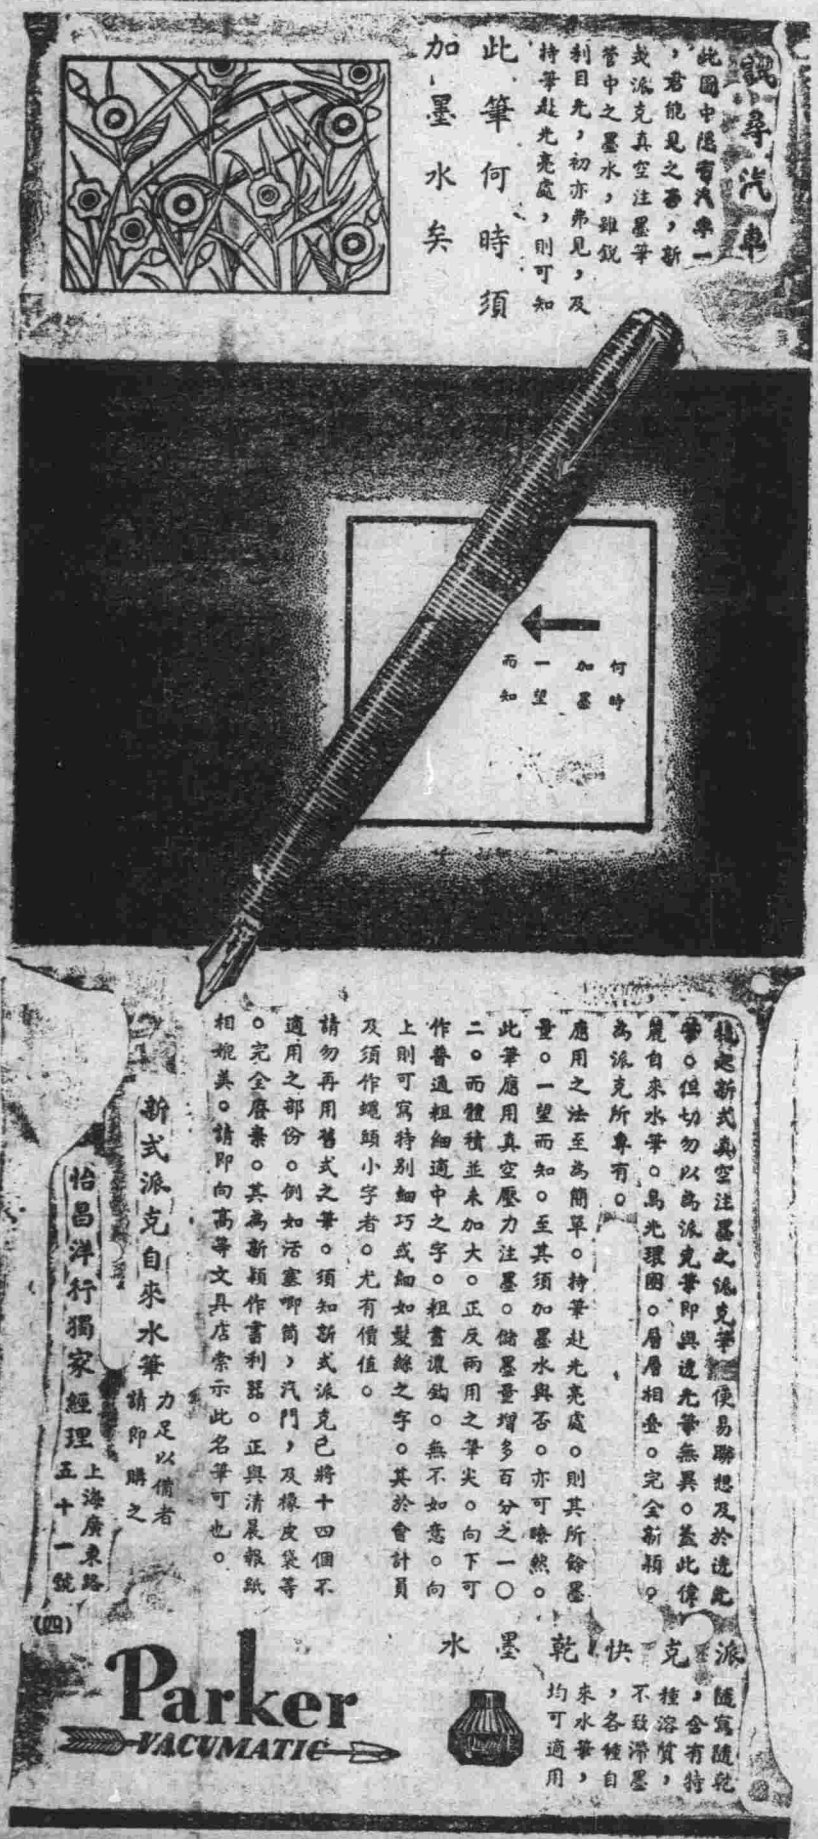 試尋汽車
此圖中隱有汽車一
，君能見之否，新
式派克真空注墨筆
管中之墨水，雖銳
利目光，初亦弗見，及
持筆赴光亮處，則可知
此筆何時須
加墨水矣
何時
加墨
一望
而知
新式真空注墨之派克筆 便易聯想及於透光
筆。但切勿以為派克筆即與透光筆無異。蓋此偉
麗自來水筆。烏光環圈。層層相疊。完全新穎。
為派克所專有。
應用之法至為簡單。持筆赴光亮處。則其所餘墨
量。一望而知。至其須加墨水與否。亦可瞭然。
此筆應用真空壓力注墨。儲墨量增多百分之一〇
二。而體積並未加大。正反兩用之筆尖。向下可
作普通粗細適中之字。粗畫濃鈎。無不如意。向
上則可寫特別細巧或細如髮絲之字。其於會計員
及須作蠅頭小字者。尤有價值。
請勿再用舊式之筆。須知新式派克已將十四個不
適用之部份。例如活塞唧筒，汽門，及橡皮袋等
。完全廢棄。其為新穎作書利器。正與清晨報紙
相媲美。請即向高等文具店索示此名筆可也。
新式派克自來水筆
力足以備者
請即購之
怡昌洋行獨家經理
上海廣東路
五十一號
(四)
派克快乾墨水
隨寫隨乾
，含有特
種溶質，
不致滯墨
，各種自
來水筆，
均可適用
Parker
VACUMATIC